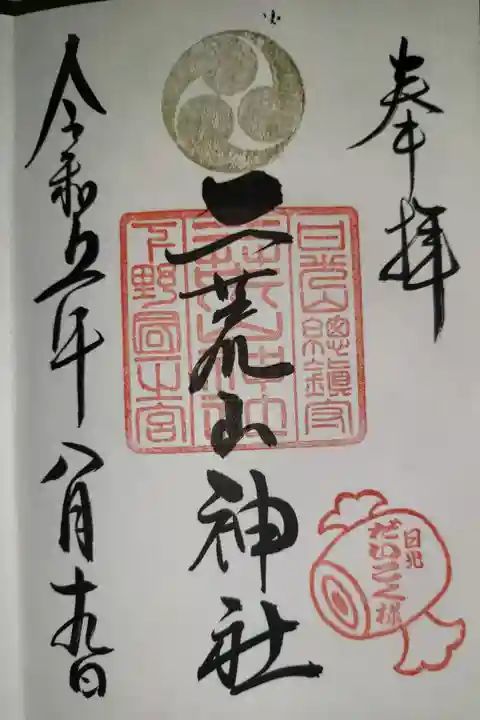 奉拝
日光山總鎮守
二荒山神社
下野國一之宮
令和五年八月十九日
日光
だいこく様